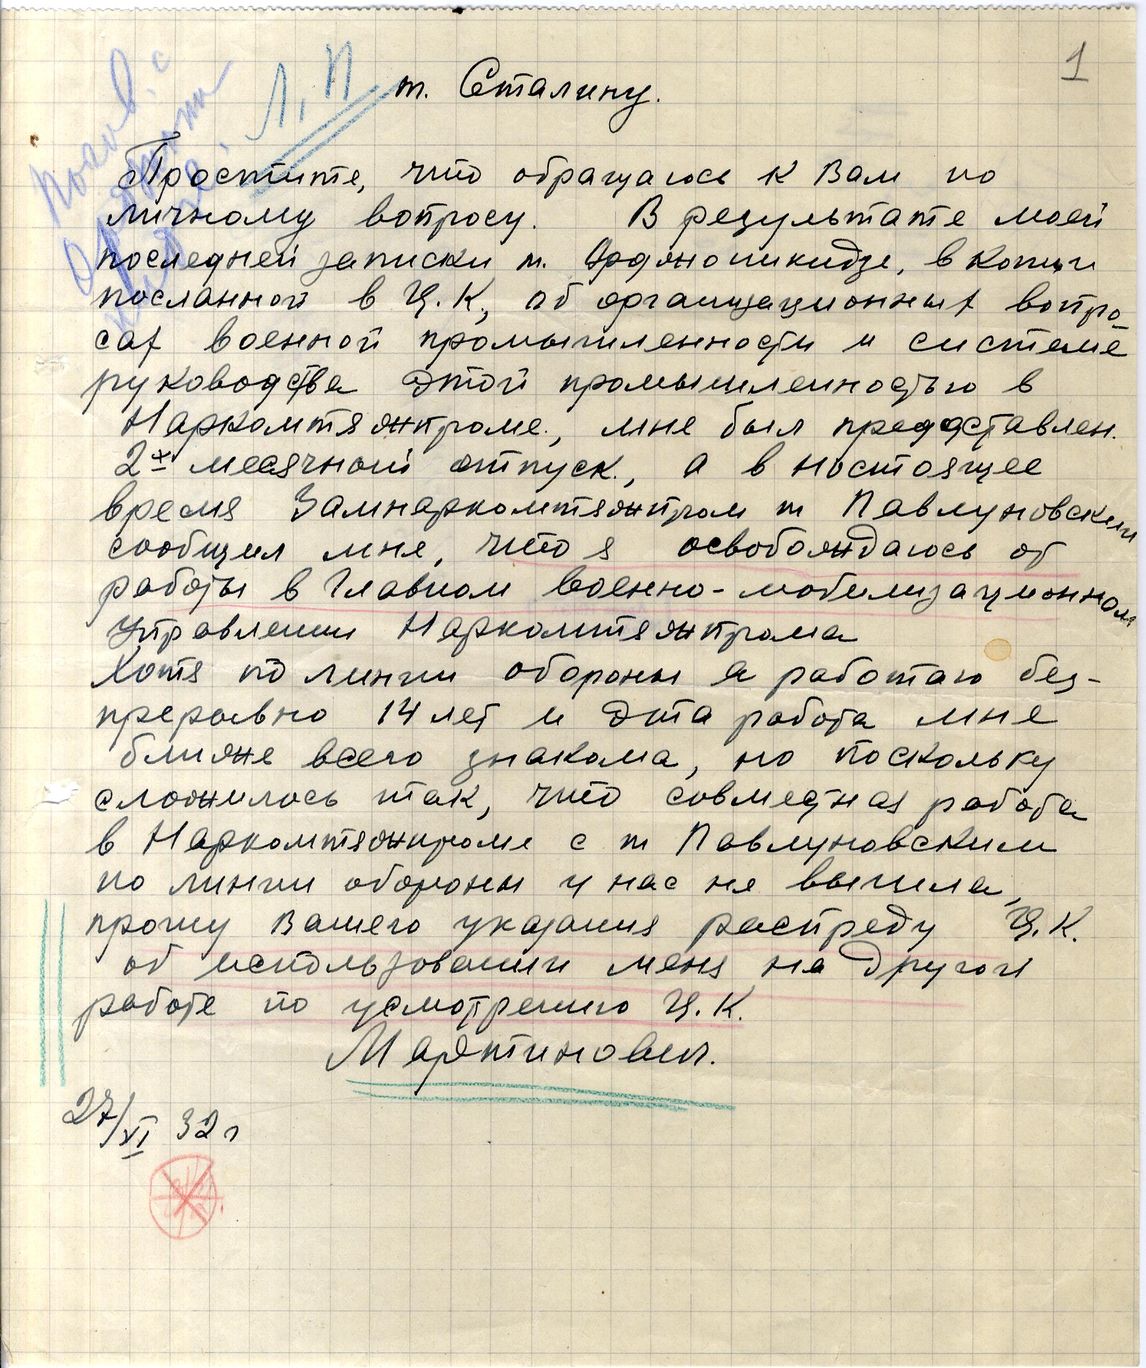 1
Л. П
т. Сталину.
Простите, что обращаюсь к Вам по
личному вопросу. В результате моей
последней записки т. Орджоникидзе, в копии
посланной в Ц.К., об организационных вопро-
сах военной промышленности и системе
руководства этой промышленностью в
Наркомтяжпроме, мне был предоставлен
2х месячный отпуск, а в настоящее
время Замнаркомтяжпром т Павлуновский
сообщил мне, что я освобождаюсь от
работы в Главном военно-мобилизационном
Управлении Наркомтяжпрома
Хотя по линии обороны я работаю без-
прерывно 14 лет и эта работа мне
ближе всего знакома, но поскольку
сложилось так, что совместная работа
в Наркомтяжпроме с т Павлуновским
по линии обороны у нас не вышла,
прошу Вашего указания распреду Ц.К.
об использовании меня на другой
работе по усмотрению Ц.К.
Мартинович.
27/VI 32 г